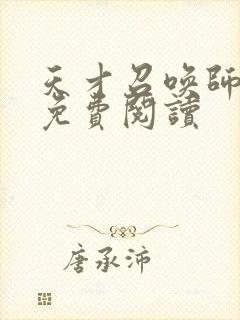 天才召喚師
免費閱讀
唐承沛